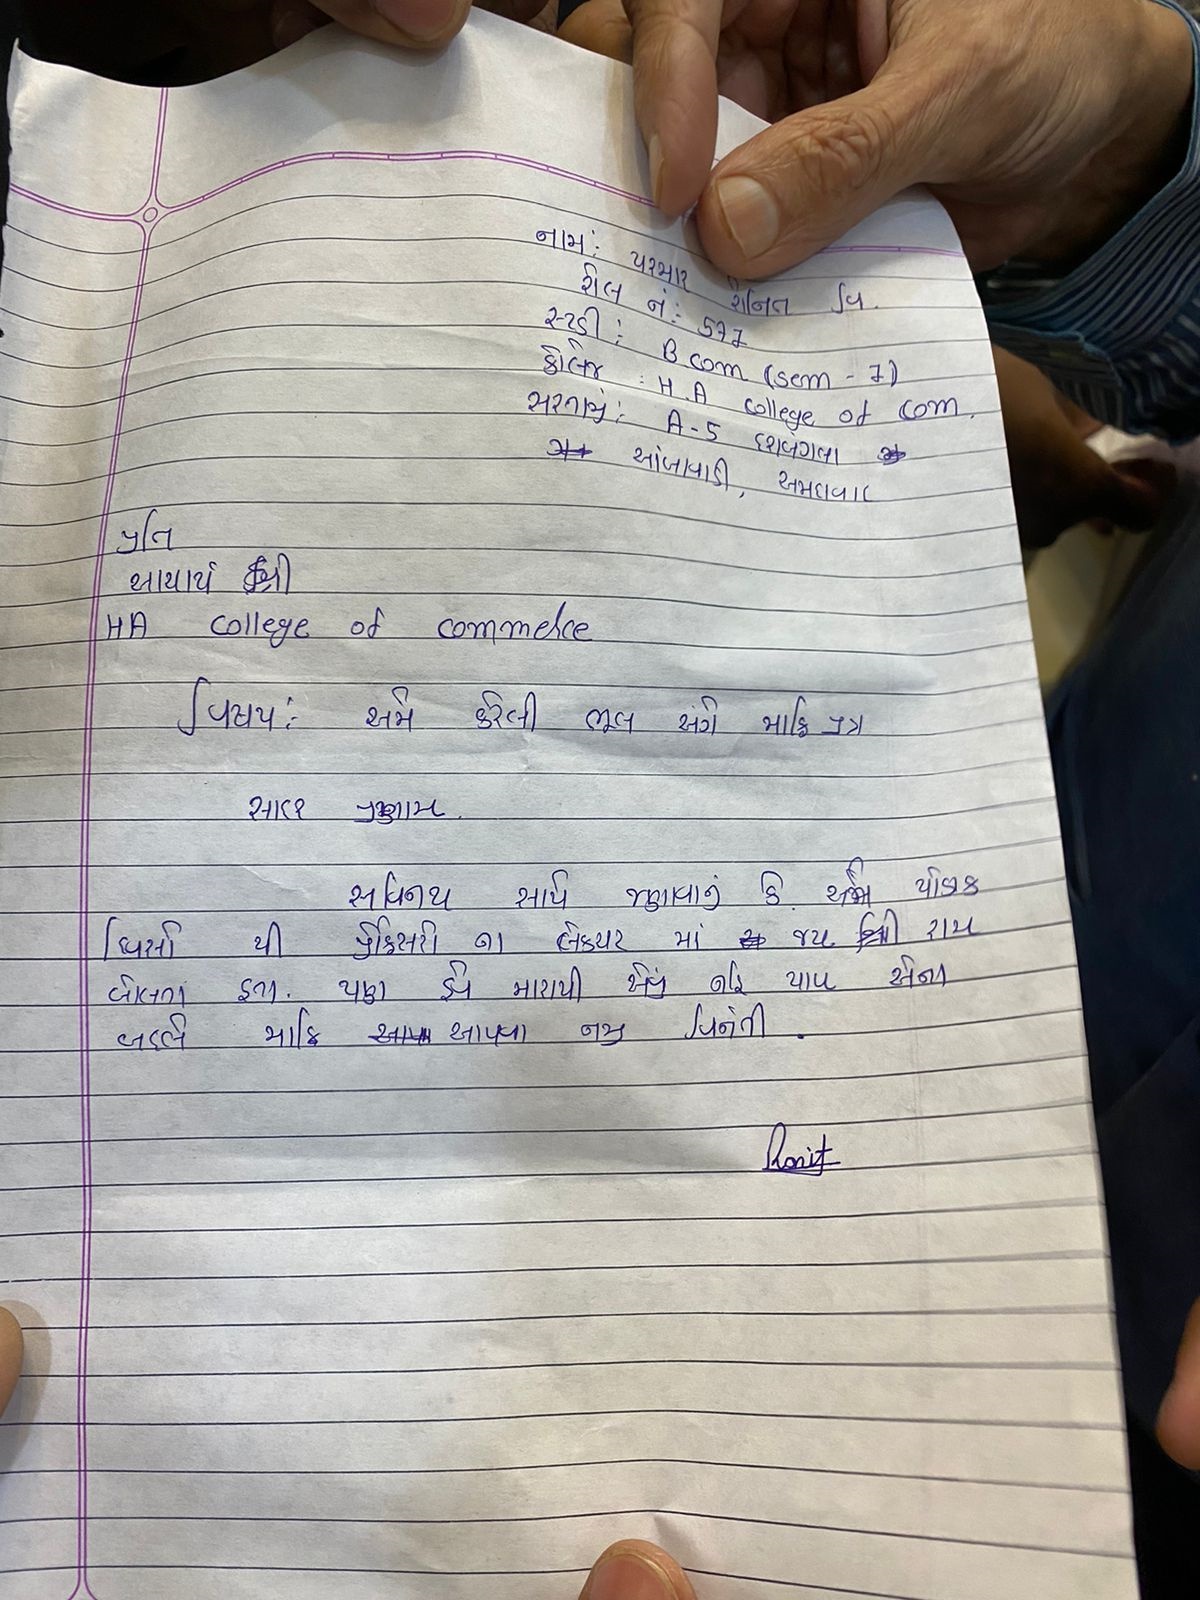 નામ: પરમાર રોનિત વિ.
રોલ નં: 577
સ્ટડી: B com (sem - 7)
કોલેજ : H.A college of com.
સરનામું: A-5 દશબંગલા
આંબાવાડી, અમદાવાદ
પ્રતિ
આચાર્ય શ્રી
HA college of commerce
વિષય: અમે કરેલી ભૂલ અંગે માફિ પત્ર
સાદર પ્રણામ.
સવિનય સાથે જણાવાનું કે અમે થોડાક
દિવસો થી પ્રોફેસરો ના લેક્ચર માં જય શ્રી રામ
બોલતા હતા. પણ હવે મારાથી એવું નહિ થાય એના
બદલે માફિ આપવા નમ્ર વિનંતી.
Ronit